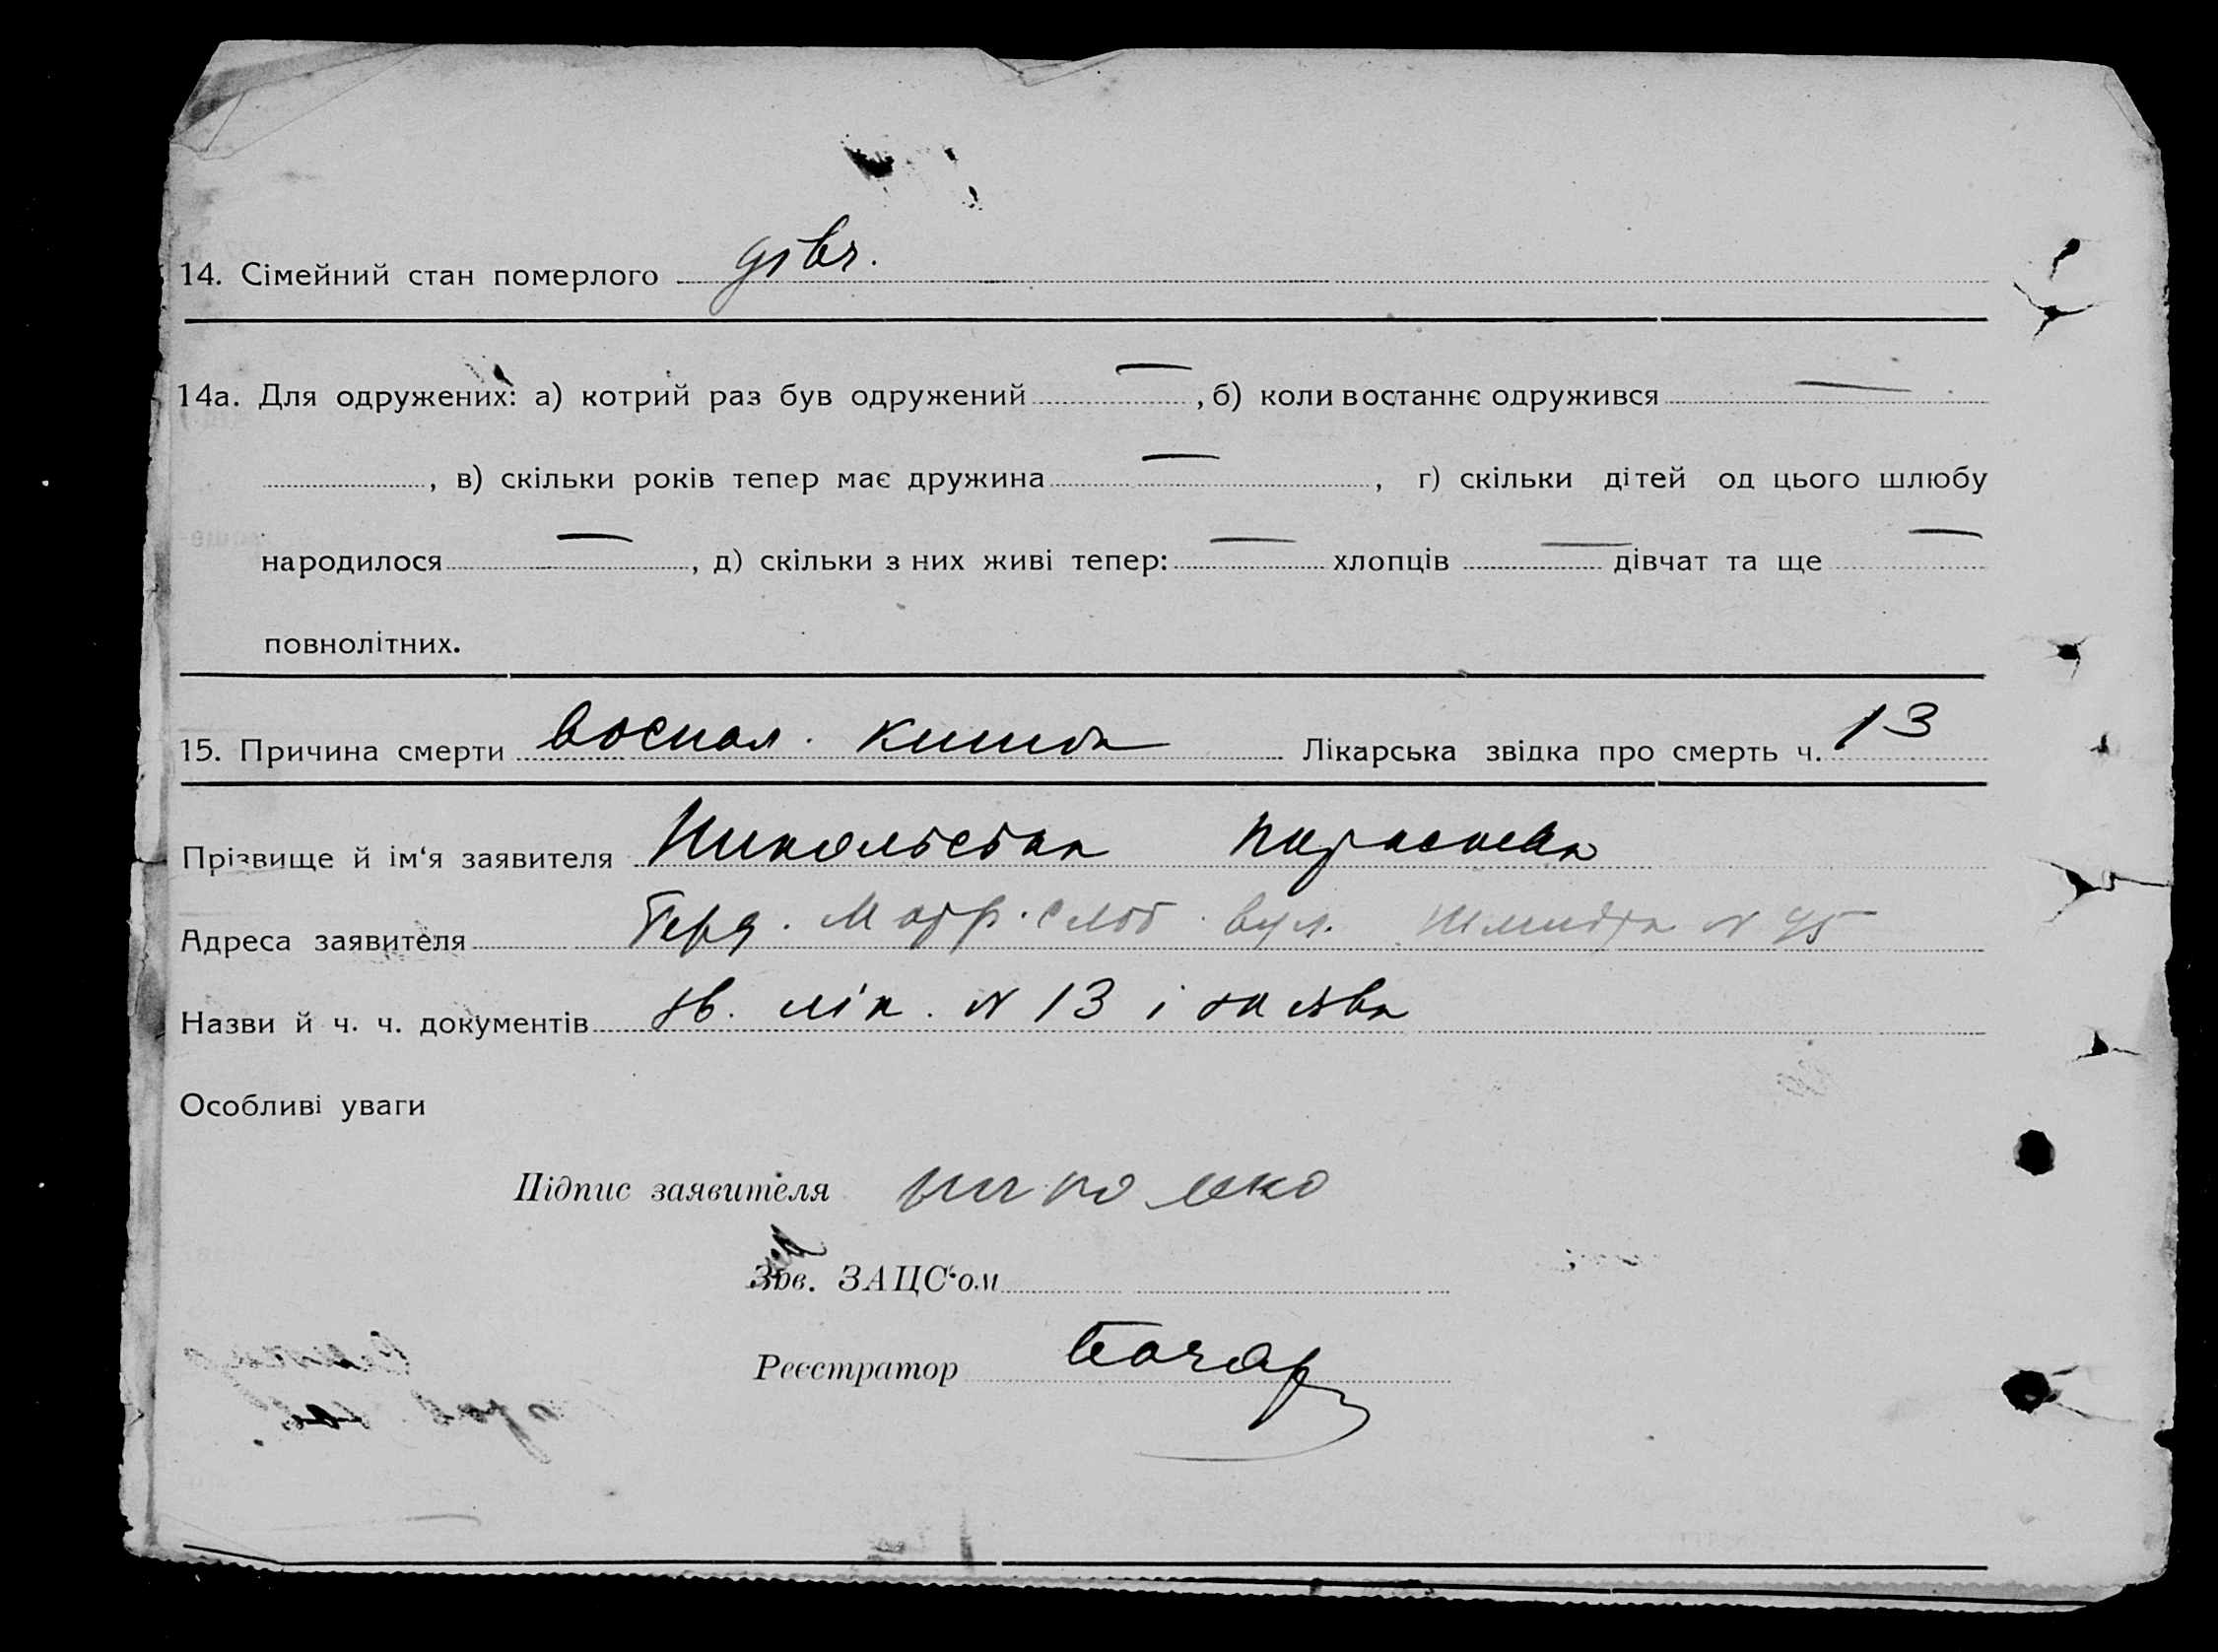 14. Сімейний стан померлого дівч.
14а. Для одружених: а) котрий раз був одружений — , б) коли востаннє одружився —
, в) скільки років тепер має дружина — , г) скільки дітей од цього шлюбу
народилося — , д) скільки з них живі тепер: — хлопців — дівчат та ще —
повнолітних.
15. Причина смерти воспал. Лікарська звідка про смерть ч. 13
Прізвище й ім'я заявителя Парасковея
Адреса заявителя Берд. слоб. вул. Шмидта N 45
Назви й ч. ч. документів зв. лік. N 13 і заява
Особливі уваги
Підпис заявителя
Зав. ЗАЦС'ом
Реєстратор Бочар